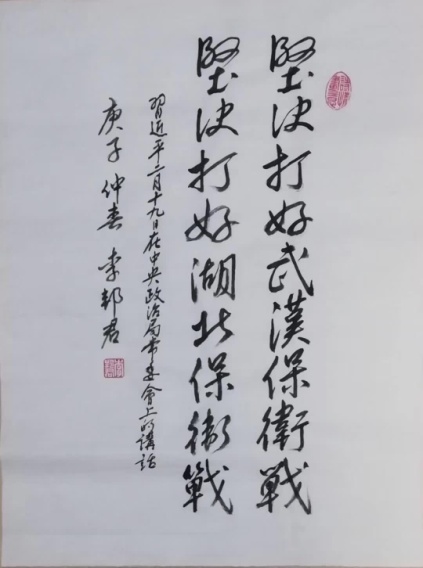 堅決打好武漢保衛戰
堅決打好湖北保衛戰
習近平二月十九日在中央政治局常委會上的講話
庚子仲春 李邦君